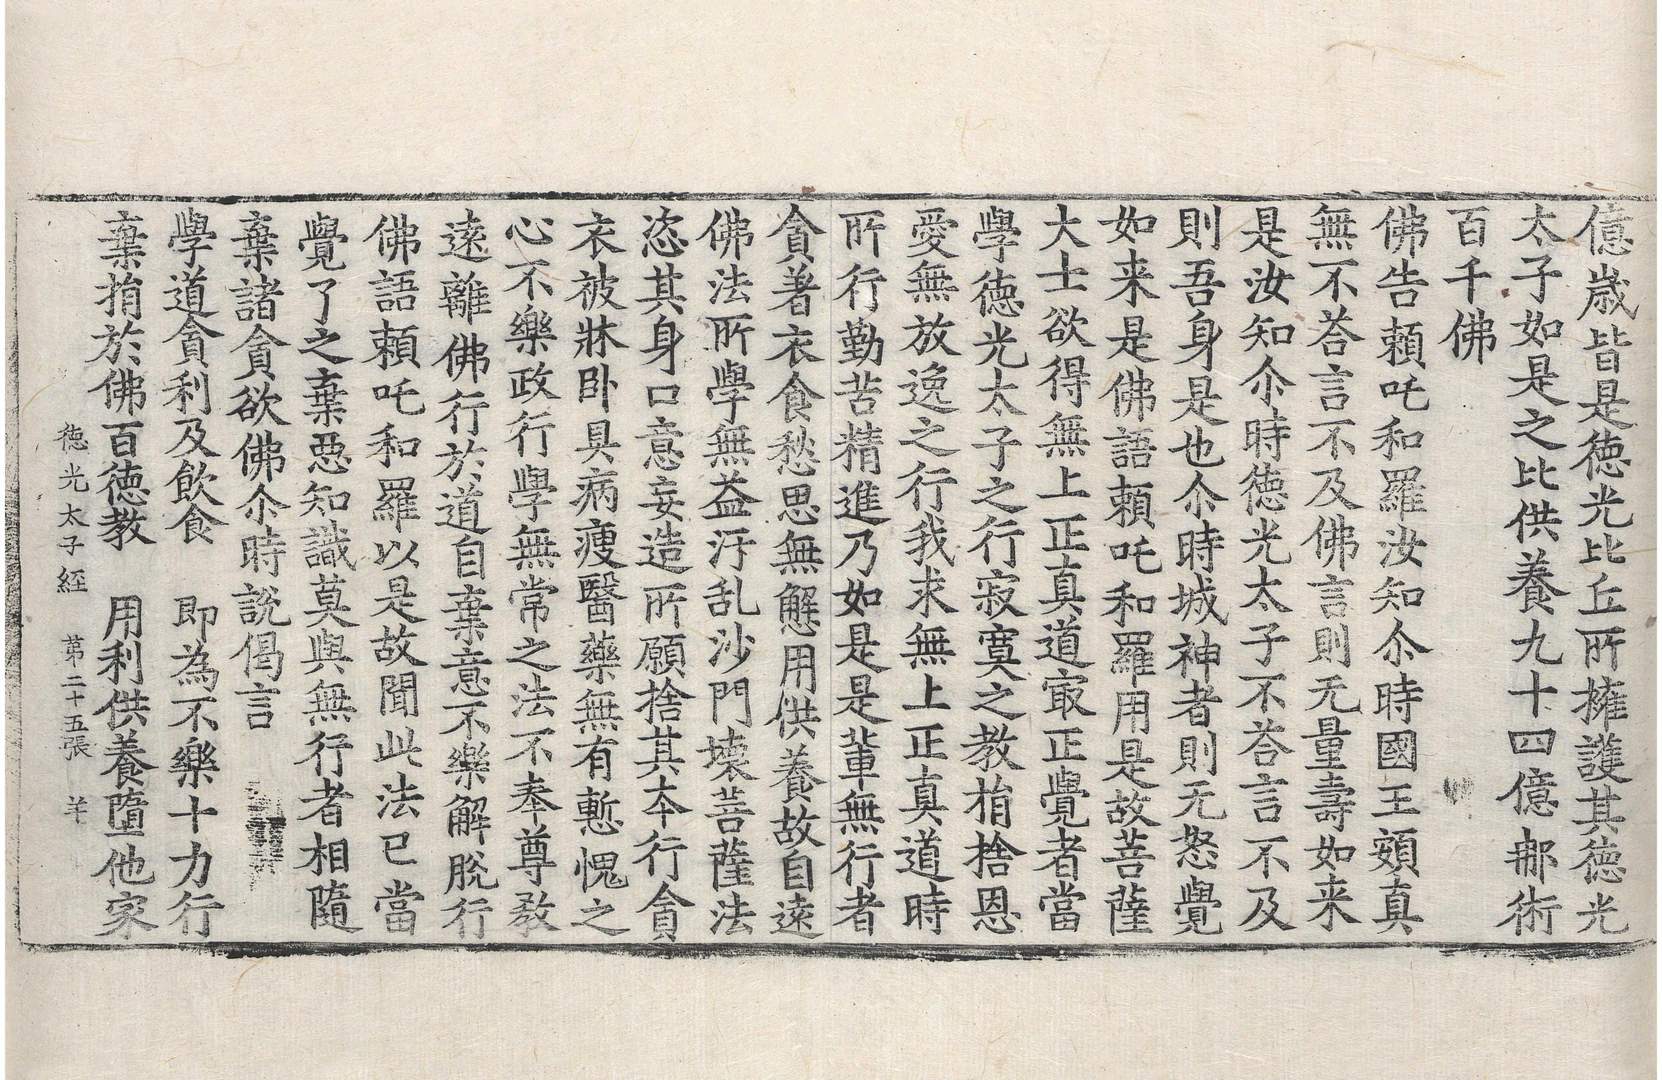 億歲皆是德光比丘所擁護其德光
太子如是之比供養九十四億那術
百千佛
佛告賴吒和羅汝知尒時國王頞真
無不荅言不及佛言則无量壽如来
是汝知尒時德光太子不荅言不及
則吾身是也尒時城神者則无怒覺
如来是佛語賴吒和羅用是故菩薩
大士欲得無上正真道㝡正覺者當
學德光太子之行寂寞之教捐捨恩
愛無放逸之行我求無上正真道時
所行勤苦精進乃如是是輩無行者
貪著衣食愁思無解用供養故自遠
佛法所學無益汙乱沙門壞菩薩法
恣其身口意妄造所願捨其夲行貪
衣被牀卧具病瘦醫藥無有慙愧之
心不樂政行學無常之法不奉尊教
遠離佛行於道自棄意不樂解脫行
佛語賴吒和羅以是故聞此法已當
覺了之棄惡知識莫與無行者相隨
棄諸貪欲佛尒時說偈言
學道貪利及飲食　即為不樂十力行
棄捐於佛百德教　用利供養墮他家
德光太子經　第二十五張　羊